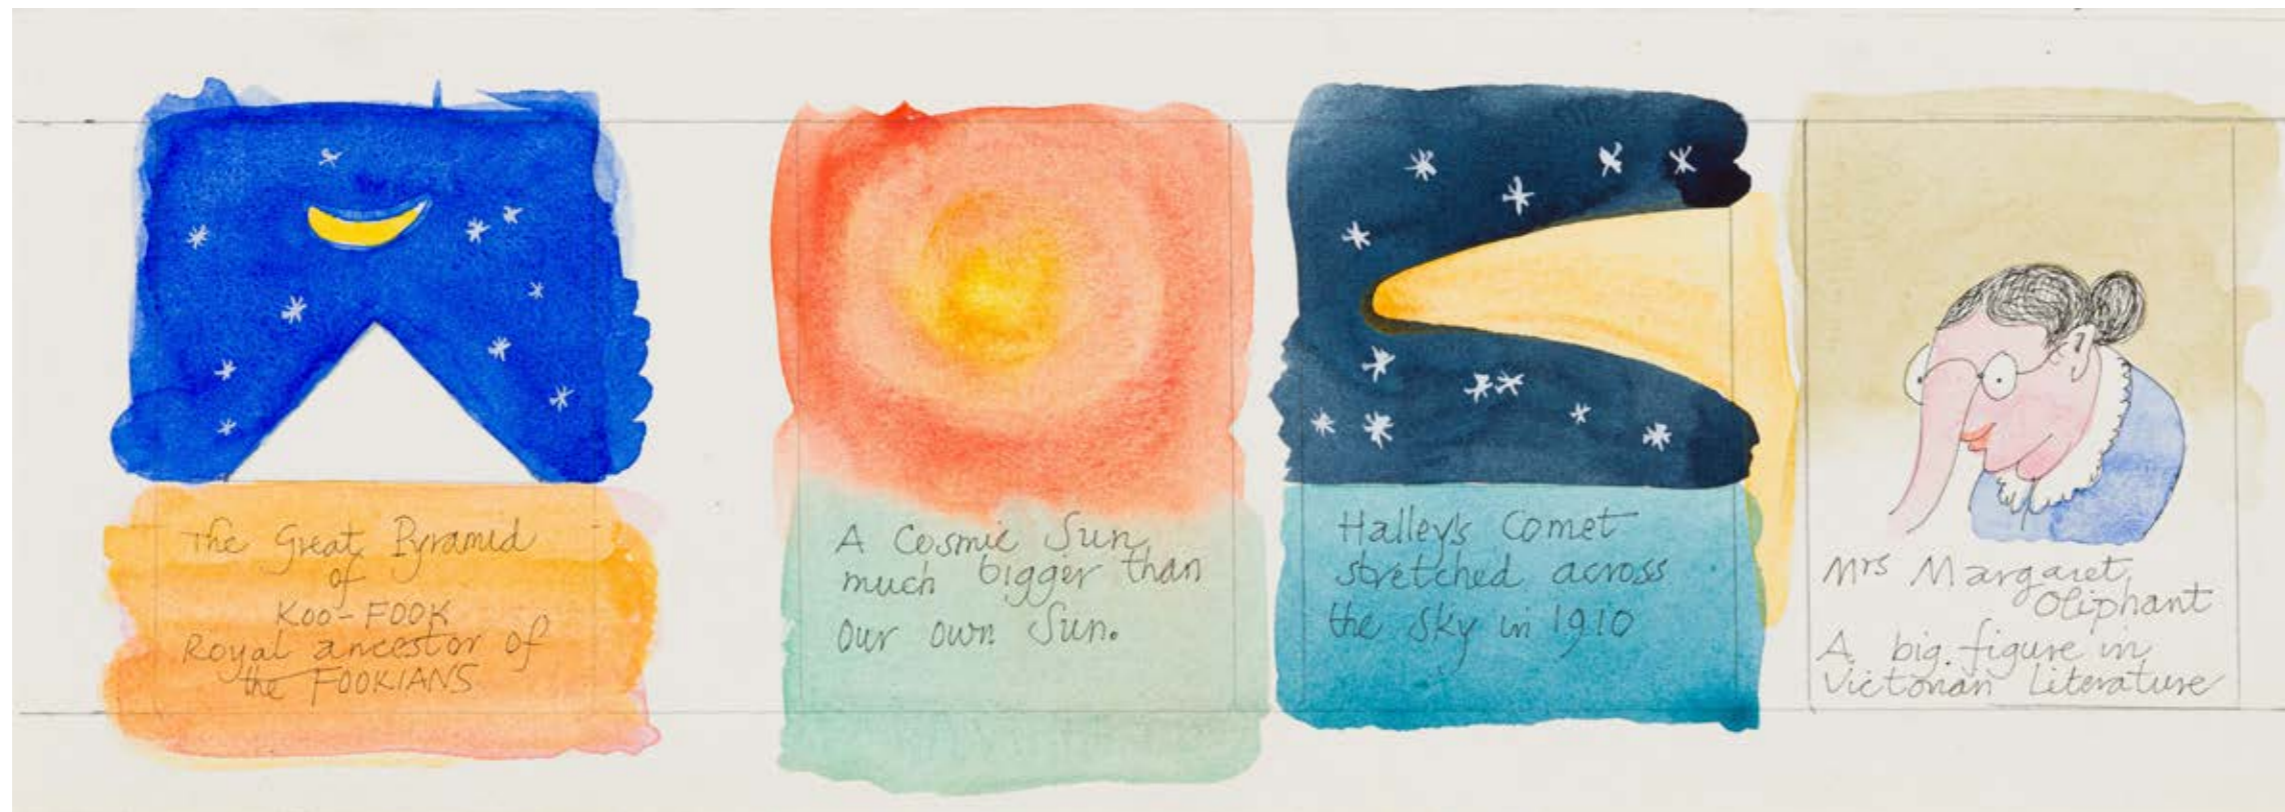 The Great Pyramid
of
KOO-FOOK
Royal ancestor of
the FOOKIANS
A Cosmic Sun
much bigger than
our own Sun.
Halley's Comet
stretched across
the sky in 1910
Mrs Margaret
Oliphant
A big figure in
Victorian Literature